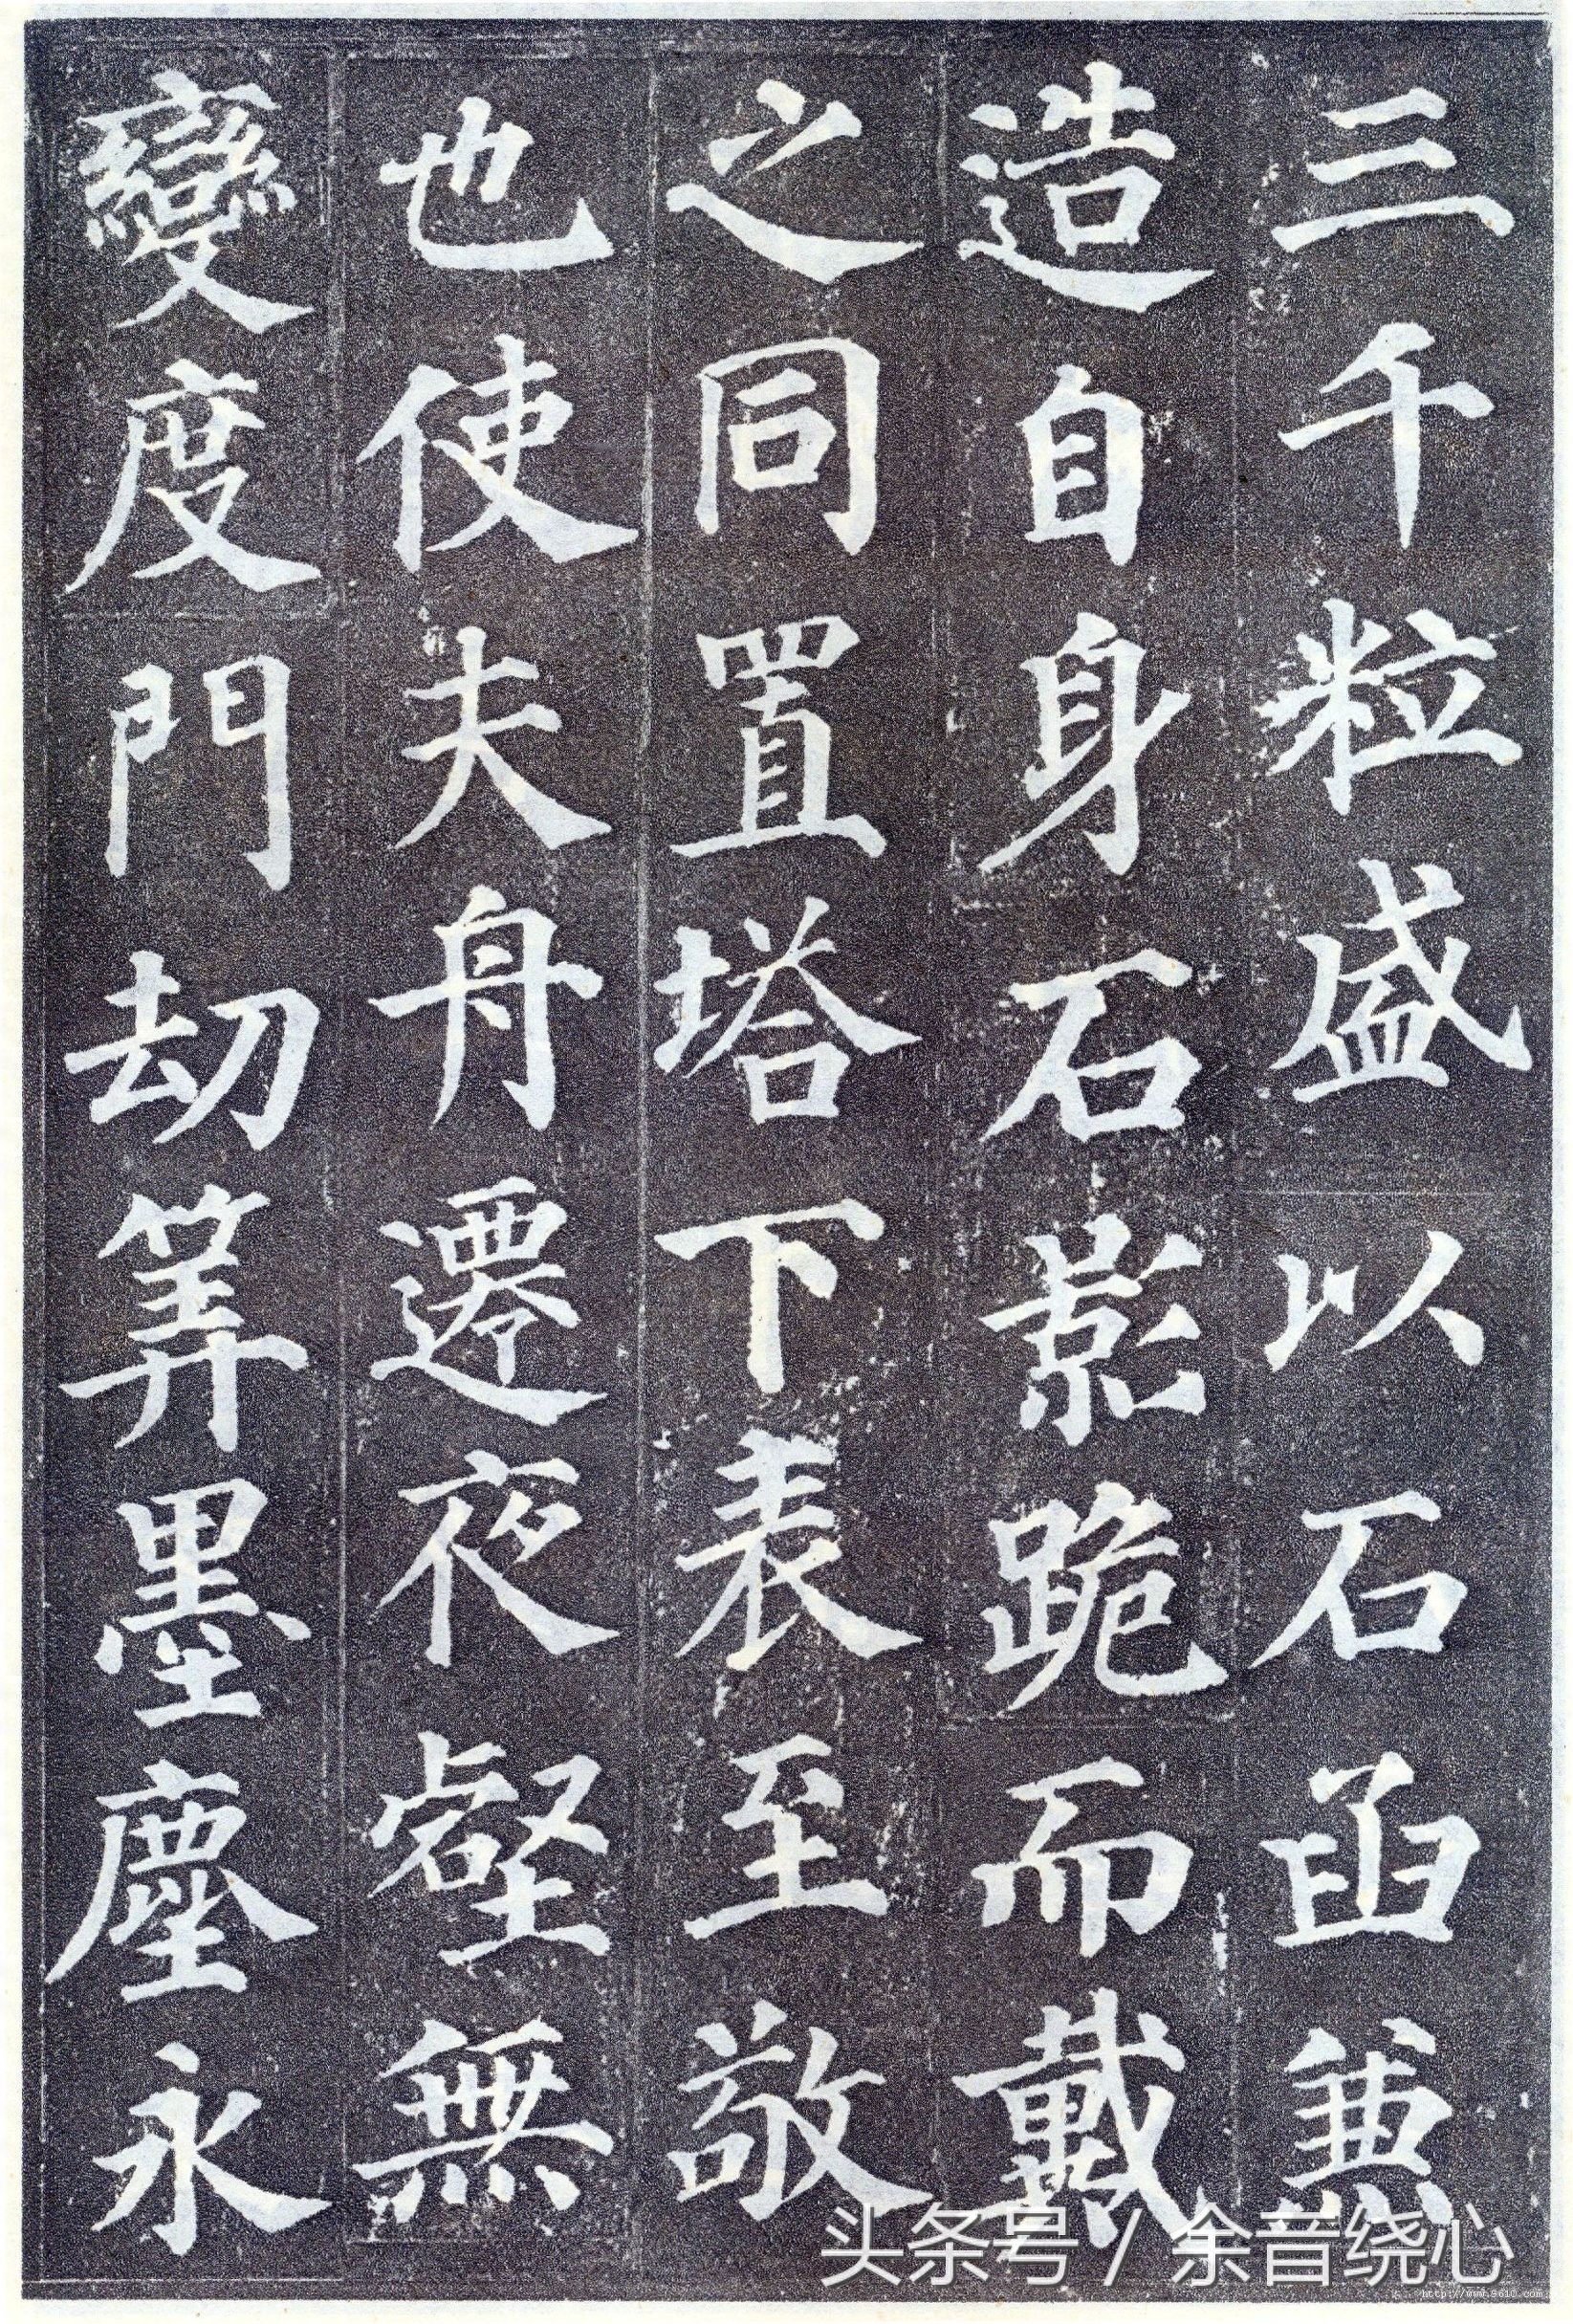 三千粒盛以石函兼
造自身石影跪而戴
之同置塔下表至敬
也使夫舟遷夜壑無
變度門劫筭墨塵永
头条号 / 余音绕心
http://www.9610.com